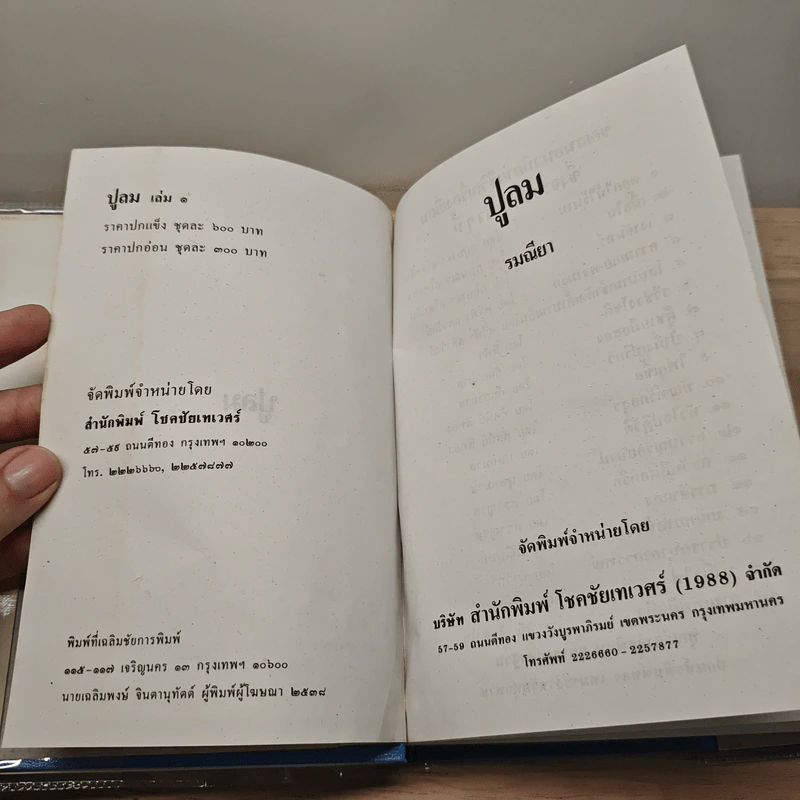 ปูลม เล่ม ๑
ราคาปกแข็ง ชุดละ ๖๐๐ บาท
ราคาปกอ่อน ชุดละ ๓๐๐ บาท
จัดพิมพ์จำหน่ายโดย
สำนักพิมพ์ โชคชัยเทเวศร์
๕๗-๕๙ ถนนตีทอง กรุงเทพฯ ๑๐๒๐๐
โทร. ๒๒๒๖๖๖๐, ๒๒๕๗๘๗๗
พิมพ์ที่เฉลิมชัยการพิมพ์
๑๑๕-๑๑๗ เจริญนคร ๑๓ กรุงเทพฯ ๑๐๖๐๐
นายเฉลิมพงษ์ จินตานุทัตต์ ผู้พิมพ์ผู้โฆษณา ๒๕๓๘
ปูลม
รมณียา
จัดพิมพ์จำหน่ายโดย
บริษัท สำนักพิมพ์ โชคชัยเทเวศร์ (1988) จำกัด
57-59 ถนนตีทอง แขวงวังบูรพาภิรมย์ เขตพระนคร กรุงเทพมหานคร
โทรศัพท์ 2226660-2257877